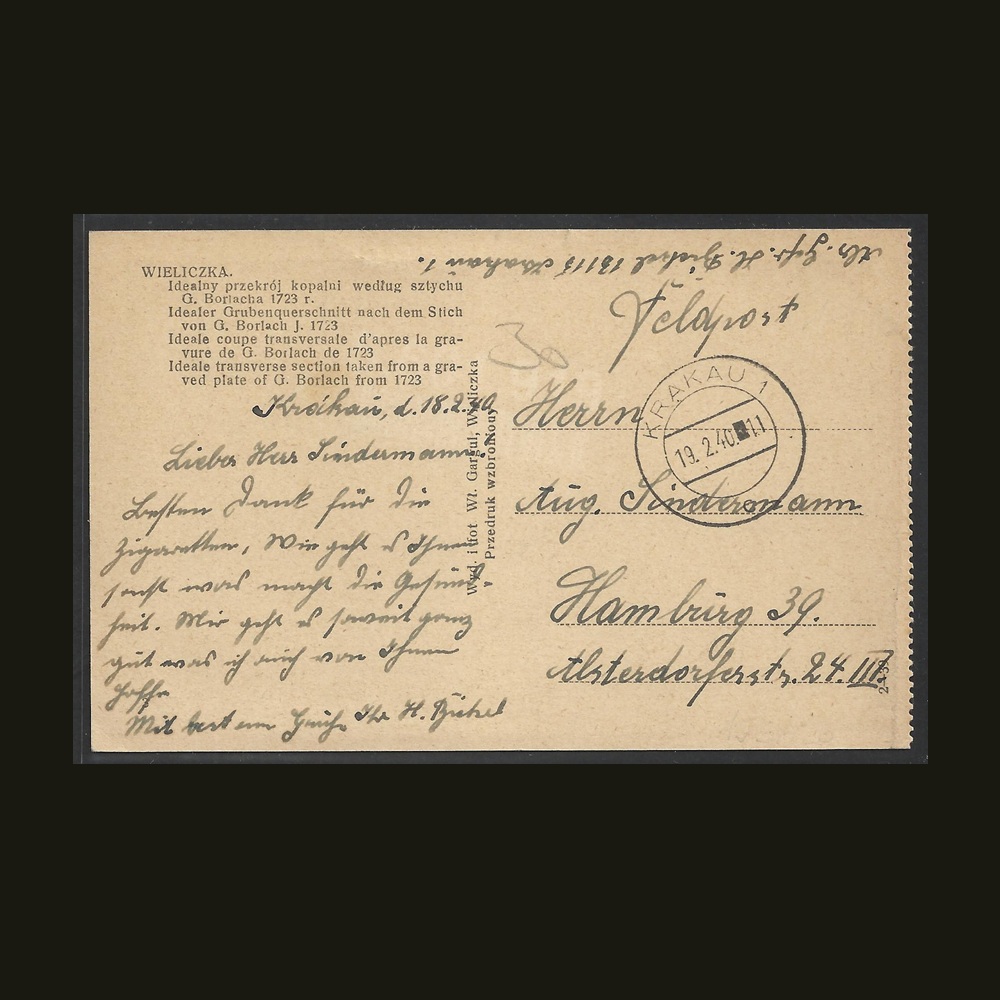 WIELICZKA.
Idealny przekrój kopalni według sztychu
G. Borlacha 1723 r.
Idealer Grubenquerschnitt nach dem Stich
von G. Borlach J. 1723
Ideale coupe transversale d'apres la gra-
vure de G. Borlach de 1723
Ideale transverse section taken from a gra-
ved plate of G. Borlach from 1723
Krakau, d. 18.2.40
Lieber Herr Sindermann!
Besten Dank für die
Zigaretten, Wie geht es Ihnen
sonst was macht die Gesund-
heit. Mir geht es soweit ganz
gut was ich auch von Ihnen
hoffe
Mit besten Ihr H.
Wyd. i fot Wł. Gargul, Wieliczka
Przedruk wzbroniony
Abs. Gefr. H. 15115 Krakau 1.
Feldpost
30
KRAKAU 1
19. 2.40. 11
Herrn
Aug. Sindermann
Hamburg 39.
Alsterdorferstr. 24. III